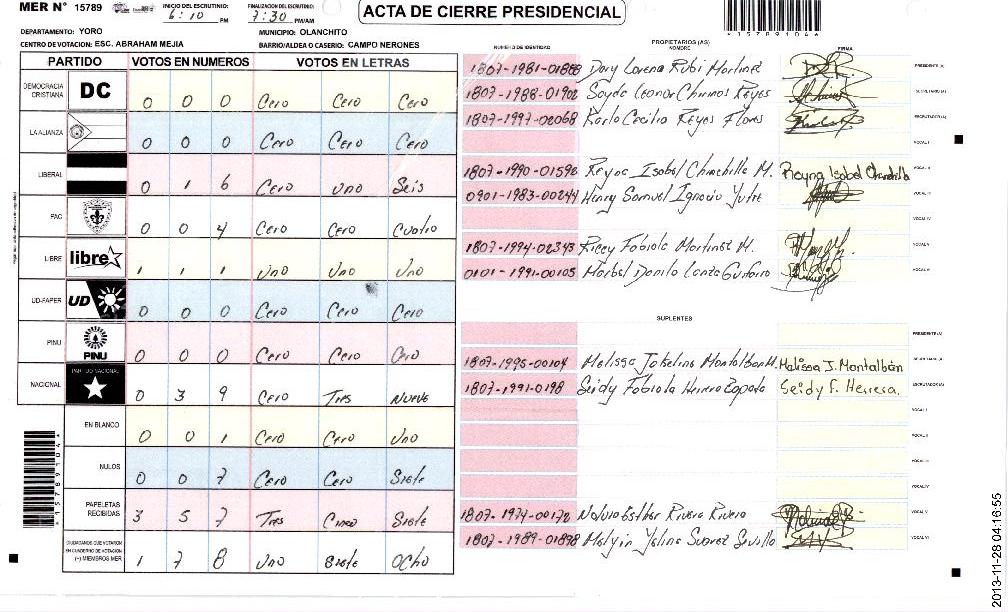 MER N° 15789
INICIO DEL ESCRUTINIO: 6:10 PM
FINALIZACION DEL ESCRUTINIO: 7:30 PM/AM
ACTA DE CIERRE PRESIDENCIAL
*15789104*
DEPARTAMENTO: YORO
MUNICIPIO: OLANCHITO
CENTRO DE VOTACION: ESC. ABRAHAM MEJIA
BARRIO/ALDEA O CASERIO: CAMPO NERONES
PARTIDO VOTOS EN NUMEROS VOTOS EN LETRAS
DEMOCRACIA CRISTIANA DC 0 0 0 Cero Cero Cero
LA ALIANZA 0 0 0 Cero Cero Cero
LIBERAL 0 1 6 Cero uno Seis
PAC 0 0 4 Cero Cero Cuatro
LIBRE libre 1 1 1 uno uno uno
UD-FAPER UD 0 0 0 Cero Cero Cero
PINU PINU 0 0 0 Cero Cero Cero
NACIONAL PARTIDO NACIONAL 0 3 9 Cero Tres nueve
EN BLANCO 0 0 1 Cero Cero uno
NULOS 0 0 7 Cero Cero Siete
PAPELETAS RECIBIDAS 3 5 7 Tres Cinco Siete
CIUDADANOS QUE VOTARON EN CUADERNO DE VOTACION (+) MIEMBROS MER 1 7 8 uno Siete Ocho
*15789104*
PROPIETARIOS (AS)
NUMERO DE IDENTIDAD NOMBRE FIRMA
1807-1981-01888 Dory Lorena Rubi Martinez PRESIDENTE (A)
1807-1988-01902 Sayda Leonor Chirinos Reyes SECRETARIO (A)
1807-1997-02068 Karla Cecilia Reyes Flores ESCRUTADOR (A)
VOCAL I
1807-1990-01598 Reyna Isabel Chinchilla M. Reyna Isabel Chinchilla VOCAL II
0901-1983-00244 Henry Samuel Ignacio VOCAL III
VOCAL IV
1807-1994-02343 Fabiola Martinez M. VOCAL V
0101-1991-00105 Danilo VOCAL VI
SUPLENTES
PRESIDENTE (A)
1807-1995-00104 Melissa Jakelina Montalban M. Melissa J. Montalbán SECRETARIO (A)
1807-1991-0198 Seidy Fabiola Herrera Zapata Seidy F. Herrera. ESCRUTADOR (A)
VOCAL I
VOCAL II
VOCAL III
VOCAL IV
1807-1974-00172 Rivera Rivera VOCAL V
1807-1989-01898 Suarez VOCAL VI
2013-11-28 04:16:55